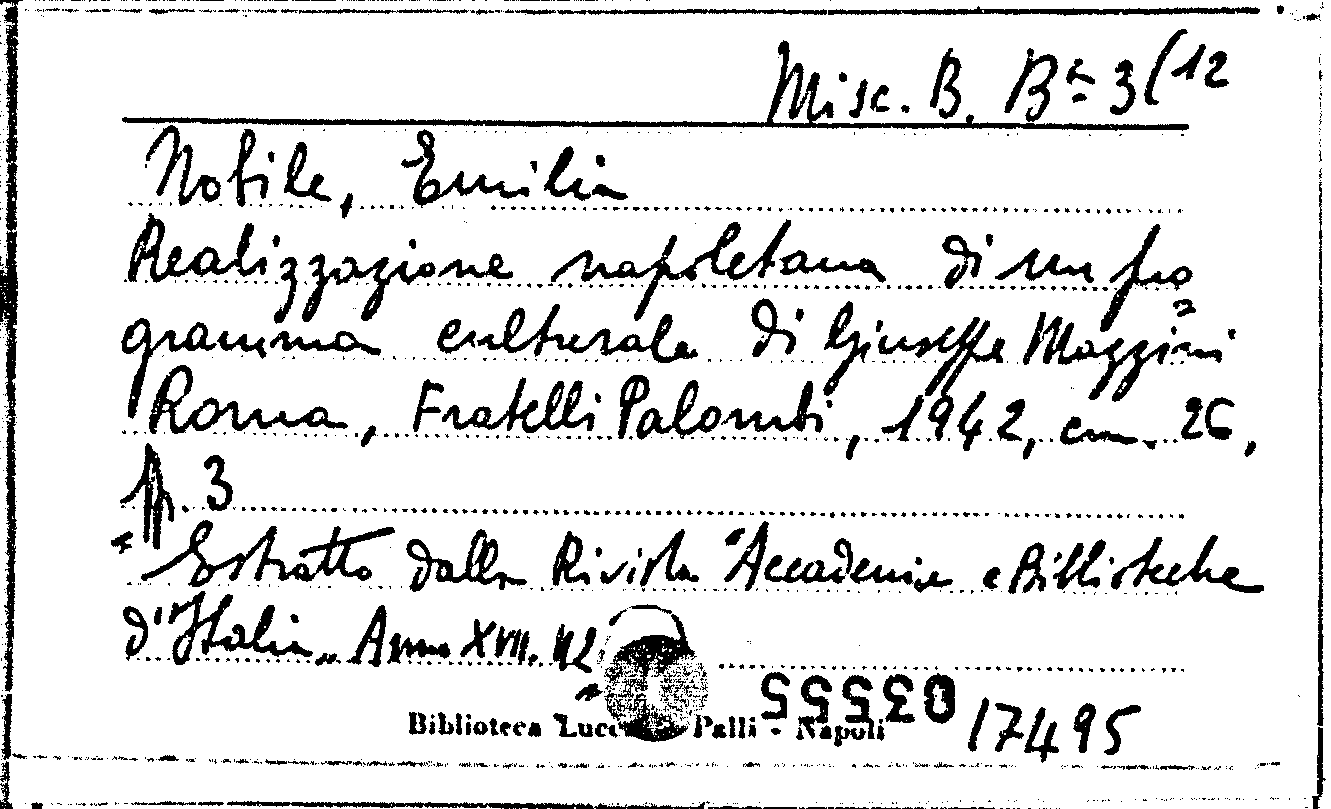 Misc. B. Bᵃ 3(12
Nobile, Emilia
Realizzazione napoletana di un pro=
gramma culturale di Giuseppe Mazzini
Roma, Fratelli Palombi, 1942, cm. 26,
pp. 3
"Estratto dalla Rivista "Accademie e Biblioteche
d'Italia" Anno XVII. 42
035555
Biblioteca Palli - Napoli
17495